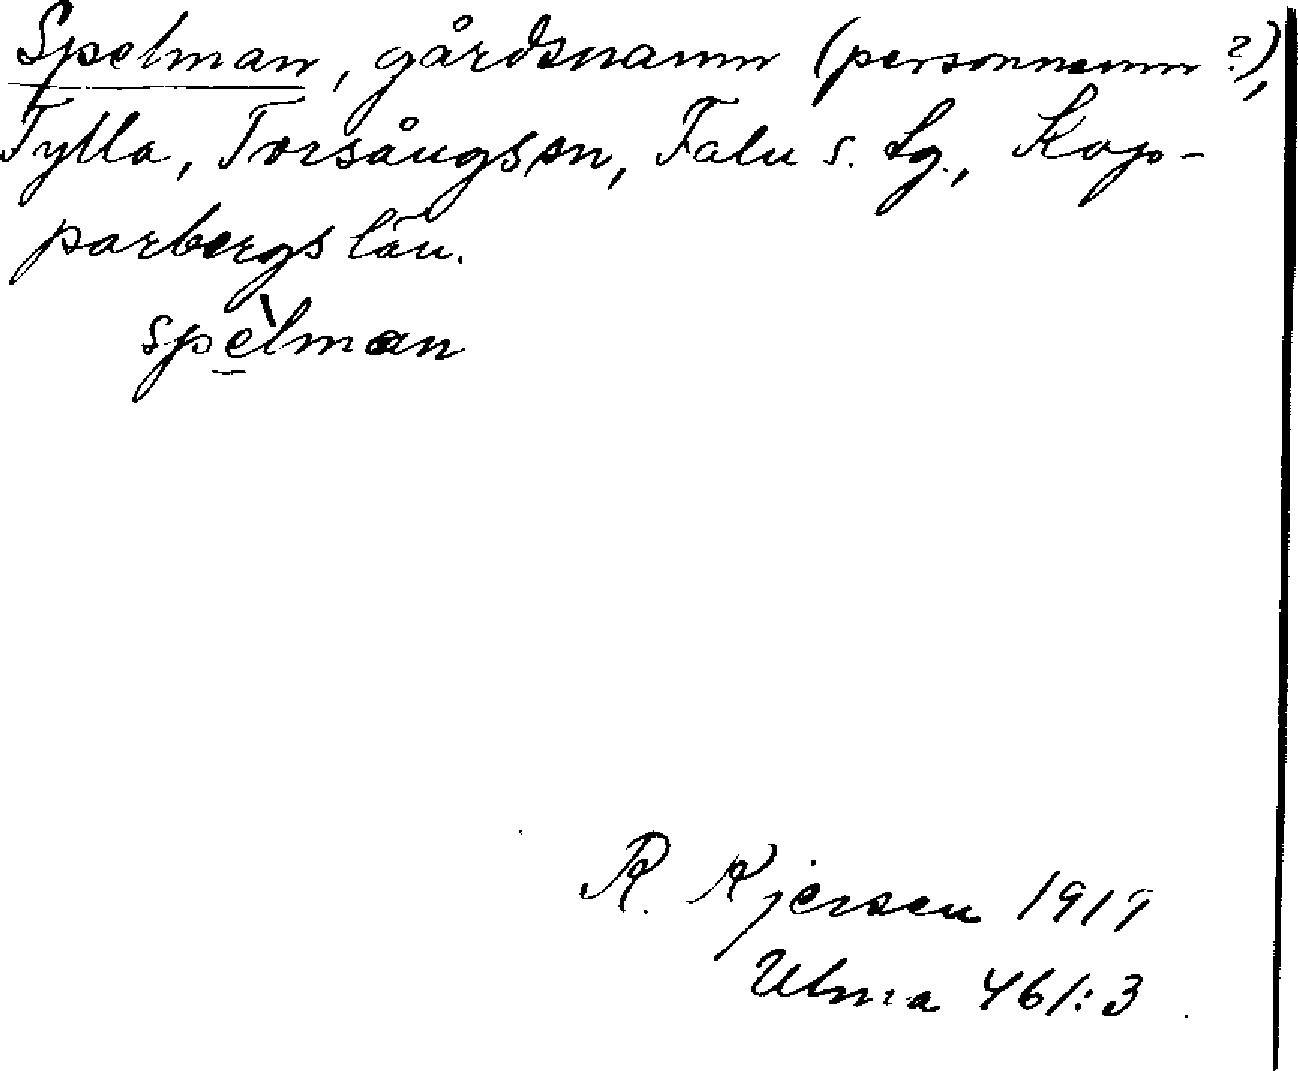 Spelman, gårdsnamn (personnamn?),
Tylla, Torsångs sn, Falu s. lg., Kop-
parbergs län.
spèlman
R. Kjersen 1919
Ulma 461:3